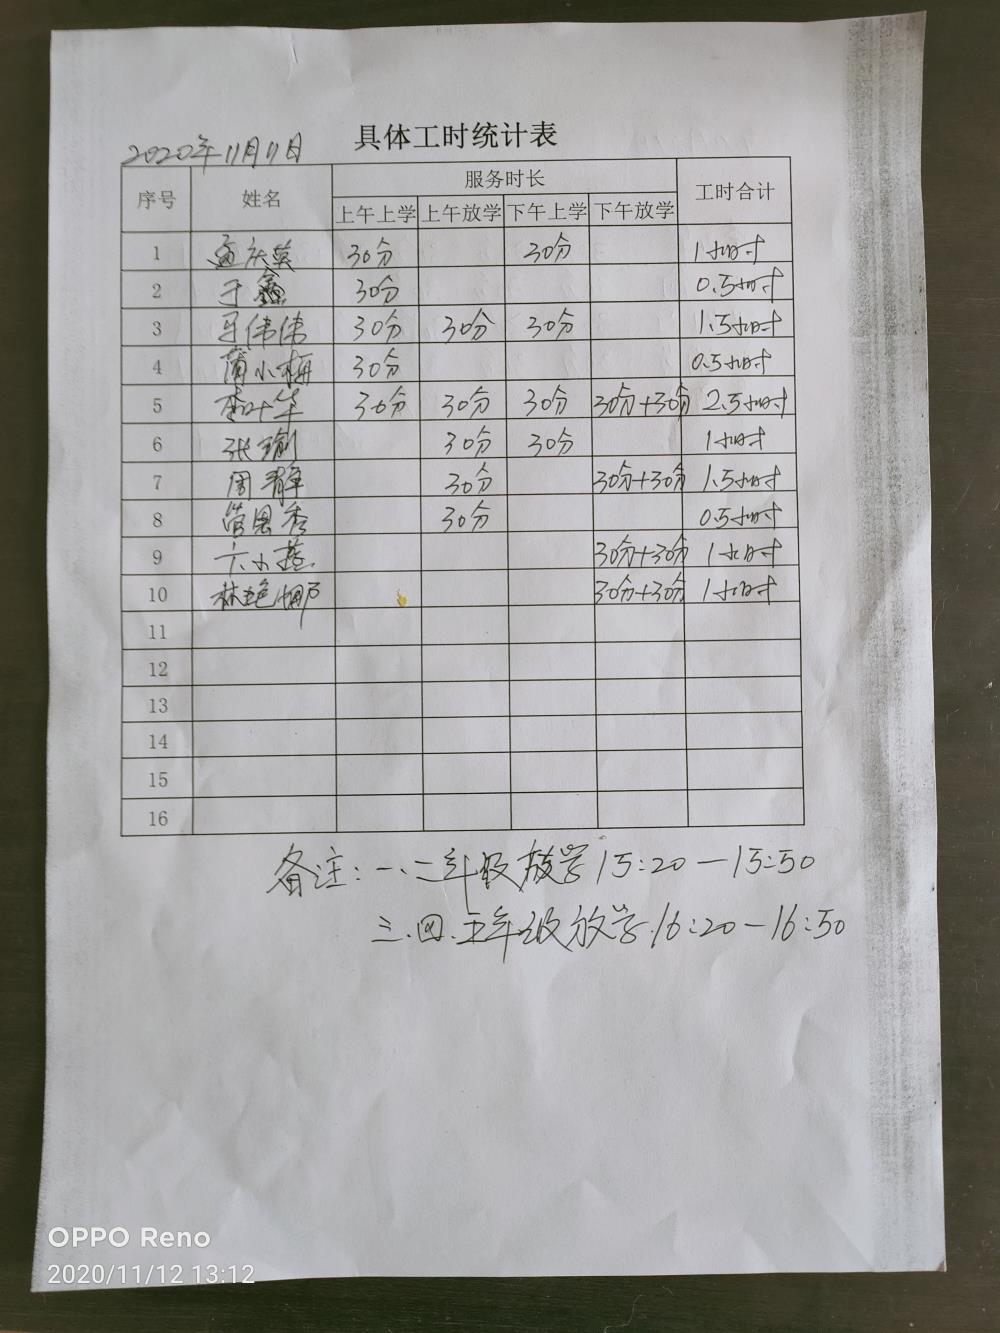 2020年11月11日
具体工时统计表
序号 姓名 服务时长 工时合计
上午上学 上午放学 下午上学 下午放学
1 孟庆英 30分 30分 1小时
2 于鑫 30分 0.5小时
3 马伟伟 30分 30分 30分 1.5小时
4 蒲小梅 30分 0.5小时
5 李叶华 30分 30分 30分 30分+30分 2.5小时
6 张瑜 30分 30分 1小时
7 周静 30分 30分+30分 1.5小时
8 管恩香 30分 0.5小时
9 六小燕 30分+30分 1小时
10 林艳娜 30分+30分 1小时
11
12
13
14
15
16
备注:一.二年级放学15:20—15:50
三.四.五年级放学.16:20—16:50
OPPO Reno
2020/11/12 13:12